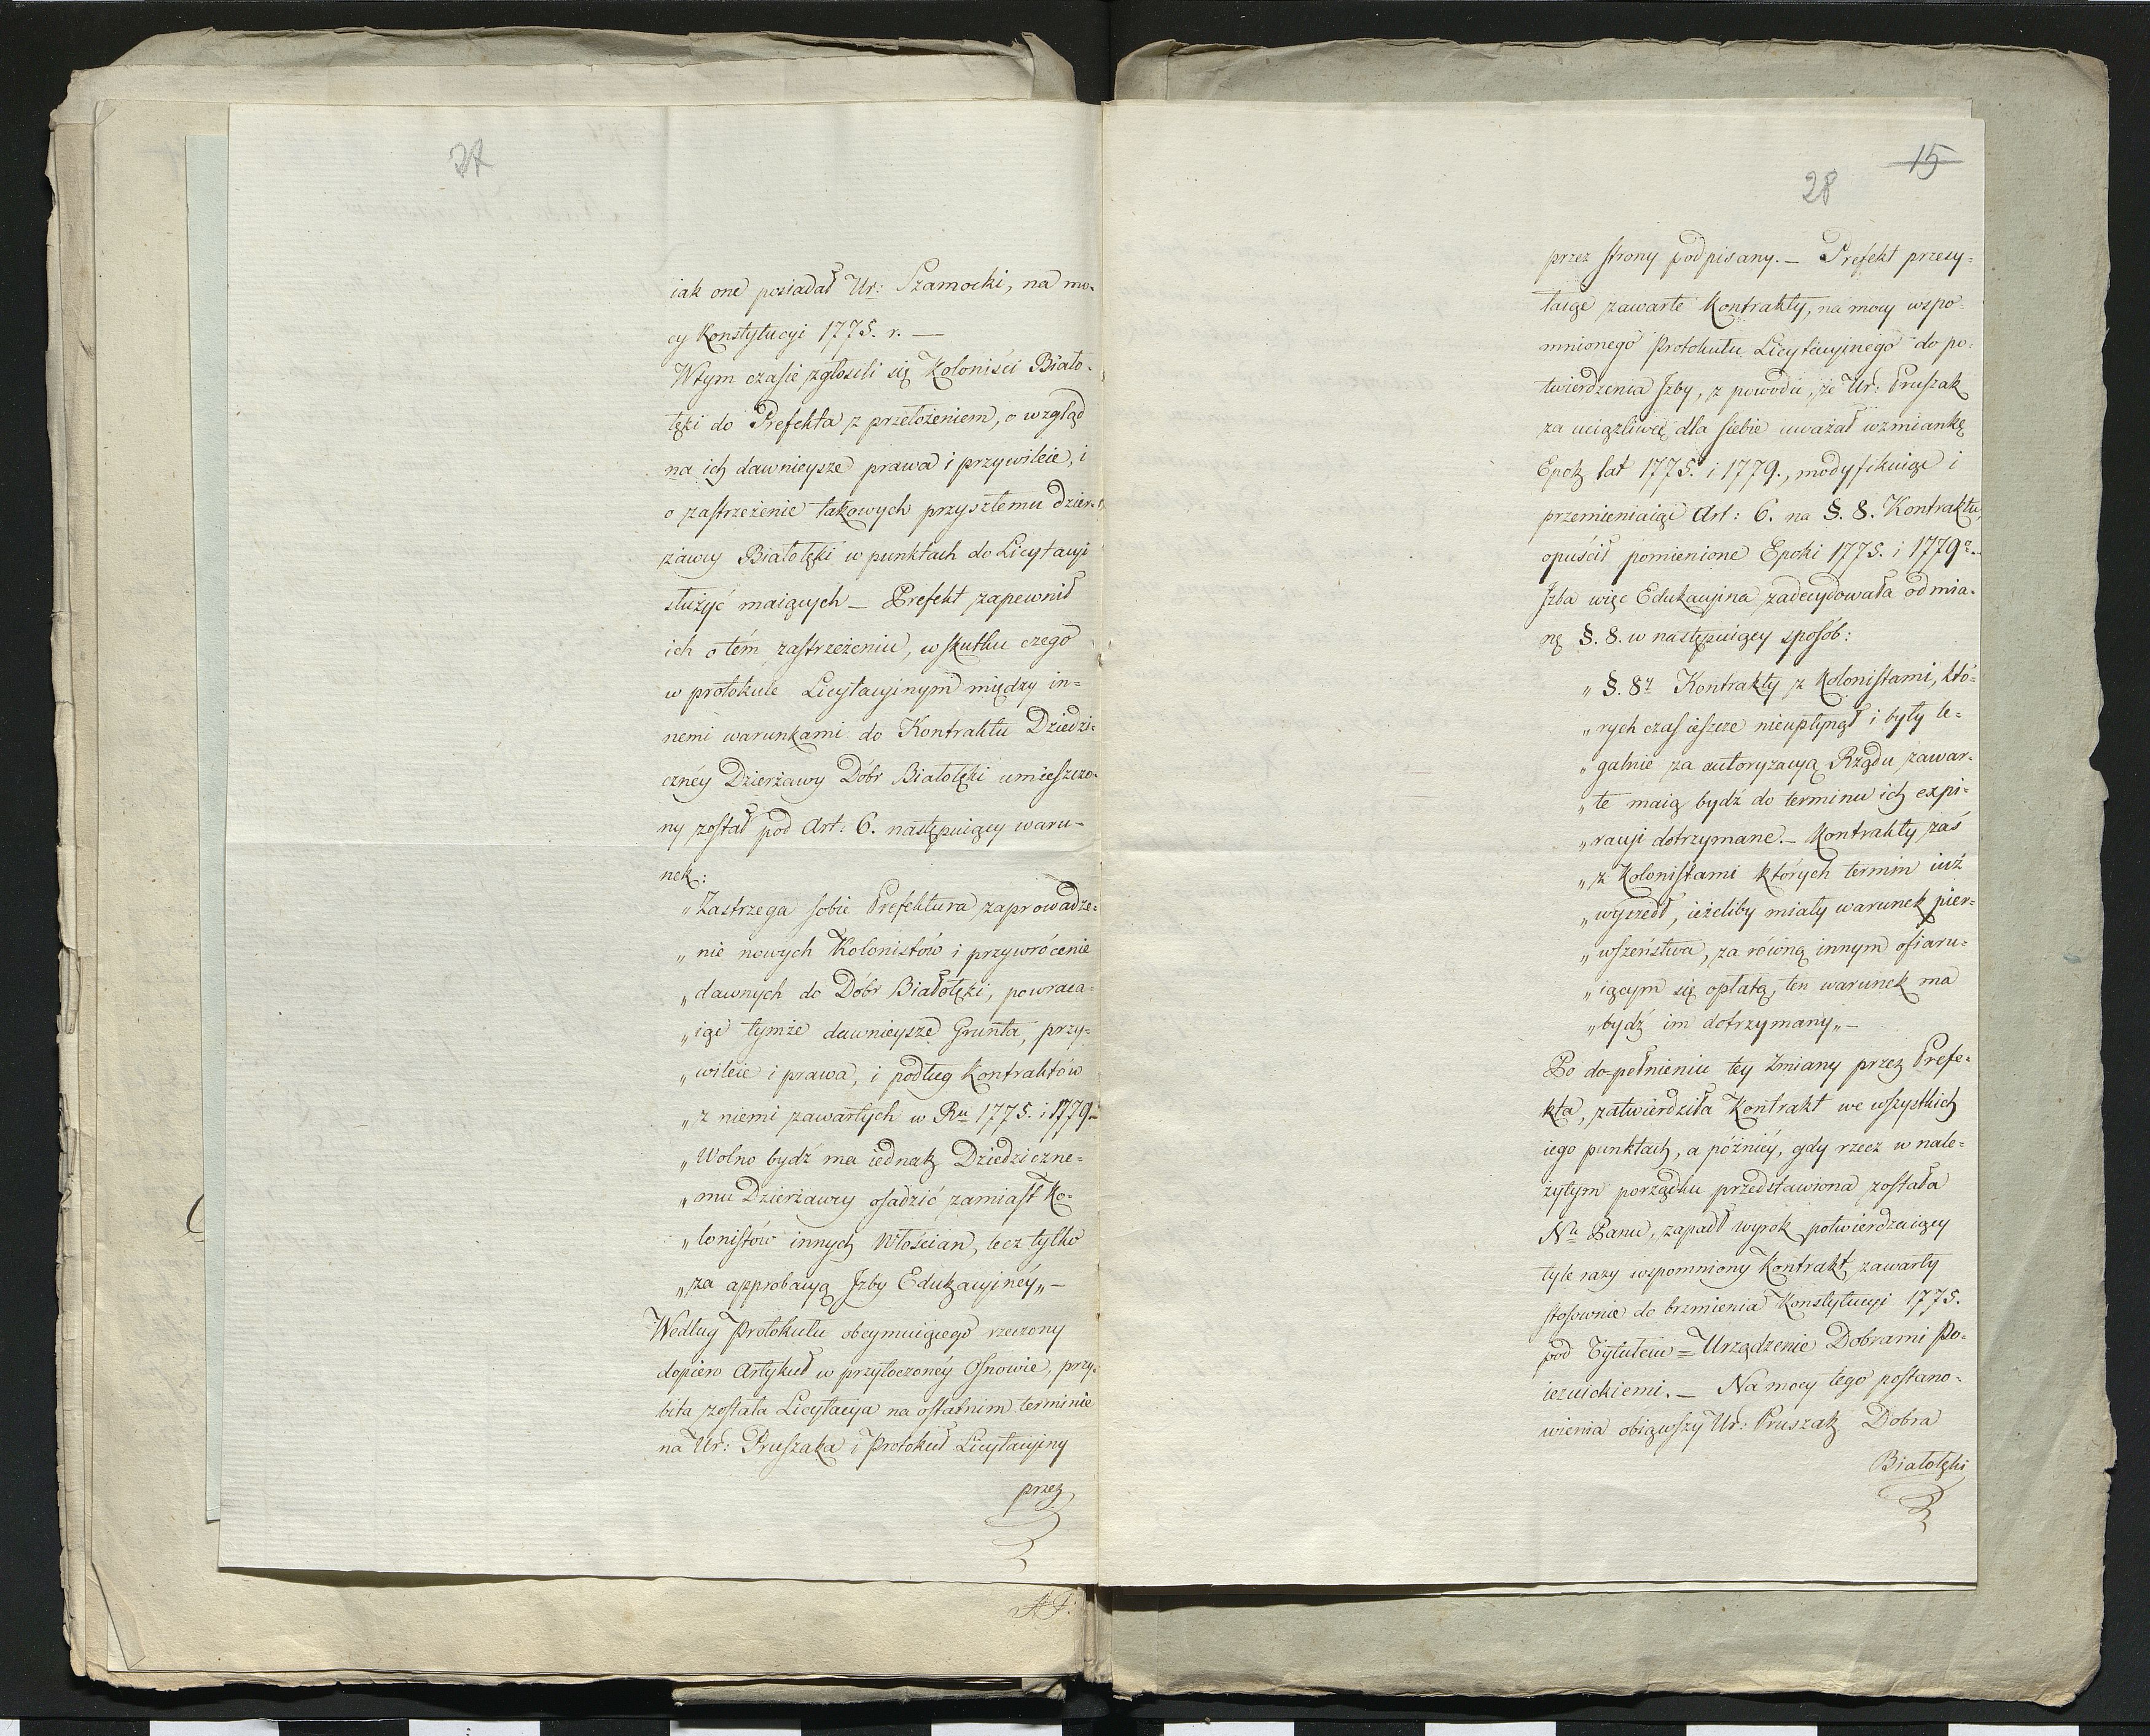 27
iak one posiadał Ur: Szamocki, na mo-
cy Konstytucyi 1775. r. —
W tym czasie zgłosili się Koloniści Biało-
łęki do Prefekta z przełożeniem, o wzgląd
na ich dawnieysze prawa i przywileie, i
o zastrzeżenie takowych przyszłemu dzier-
żawcy Białołęki w punktach do Licytacyi
służyć maiących — Prefekt zapewnił
ich o tém zastrzeżeniu, w skutku czego
w protokule Licytacyinym między in=
nemi warunkami do Kontraktu Dziedzi-
cznéy Dzierżawy Dóbr Białołęki umieszczo-
ny został pod Art: 6. następuiący waru-
nek:
„Zastrzega sobie Prefektura zaprowadze=
„nie nowych Kolonistów i przywrócenie
„dawnych do Dóbr Białołęki, powraca=
„iąc tymże dawnieysze Grunta, przy=
„wileie i prawa, i podług Kontraktów
„z niemi zawartych w Ru 1775. i 1779.—
„Wolno bydź ma iednak Dziedziczne=
„mu Dzierżawcy osadzić zamiast Ko=
„lonistów innych Włościan, lecz tylko
„za approbacyą Izby Edukacyinéy„—
Według Protokułu obeymuiącego rzeczony
dopiero Artykuł w przytoczonéy Osnowie, przy-
bita została Licytacya na ostatnim terminie
na Ur: Pruszaka i Protokuł Licytacyiny
przez
15
28
przez strony podpisany. — Prefekt przesy=
łaiąc zawarte Kontrakty, na mocy wspo=
mnionego Protokułu Licytacyinego do po=
twierdzenia Izby, z powodu, że Ur: Pruszak
za uciążliwą dla siebie uważał wzmiankę
Epok lat 1775. i 1779., modyfikuiąc i
przemieniaiąc Art: 6. na §. 8. Kontraktu,
opuścił pomienione Epoki 1775. i 1779o.—
Izba więc Edukacyina zadecydowała odmia-
nę §. 8. w następuiący sposób:
„§. 8y Kontrakty z Kolonistami, któ=
„rych czas ieszcze nieupłynął i były le=
„galnie za autoryzacyą Rządu zawar-
„te maią bydź do terminu ich expi=
„racyi dotrzymane. — Kontrakty zaś
„z Kolonistami których termin iuż
„wyszedł, ieżeliby miały warunek pier=
„wszeństwa, za równą innym ofiaru=
„iącym się opłatą, ten warunek ma
„bydź im dotrzymany„—
Po dopełnieniu tey zmiany przez Prefe=
kta, zatwierdziła Kontrakt we wszystkich
iego punktach, a późniéy, gdy rzecz w nale=
żytym porządku przedstawiona została
Nu Panu, zapadł wyrok potwierdzaiący
tyle razy wspomniony Kontrakt zawarty
stosownie do brzmienia Konstytucyi 1775.
pod Tytułem = Urządzenie Dobrami Po-
iezuickiemi. — Na mocy tego postano-
wienia obiąwszy Ur: Pruszak Dobra
Białołęki